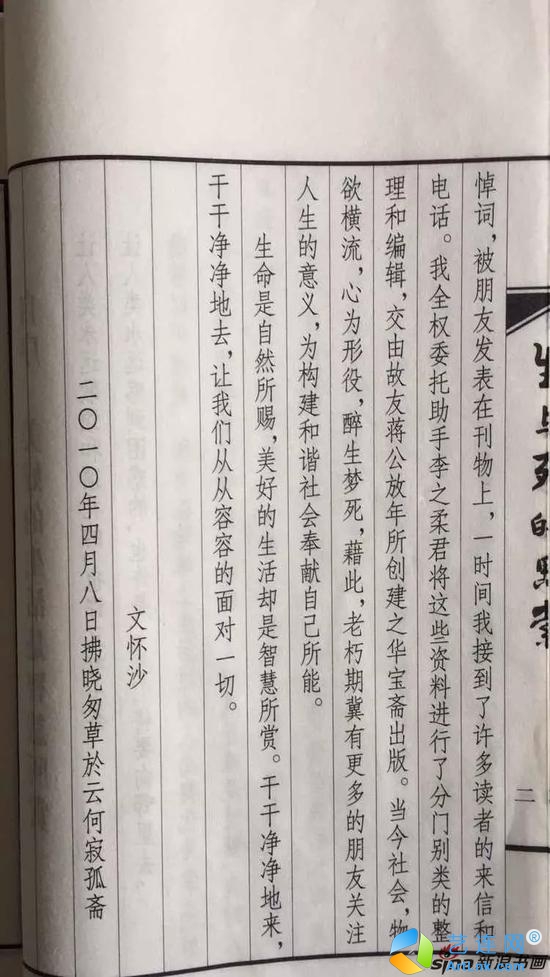 生与死的思索
二
悼词，被朋友发表在刊物上，一时间我接到了许多读者的来信和
电话。我全权委托助手李之柔君将这些资料进行了分门别类的整
理和编辑，交由故友蒋公放年所创建之华宝斋出版。当今社会，物
欲横流，心为形役，醉生梦死，藉此，老朽期冀有更多的朋友关注
人生的意义，为构建和谐社会奉献自己所能。
生命是自然所赐，美好的生活却是智慧所赏。干干净净地来，
干干净净地去，让我们从从容容的面对一切。
文怀沙
二〇一〇年四月八日拂晓匆草於云何寂孤斋
sina新浪书画